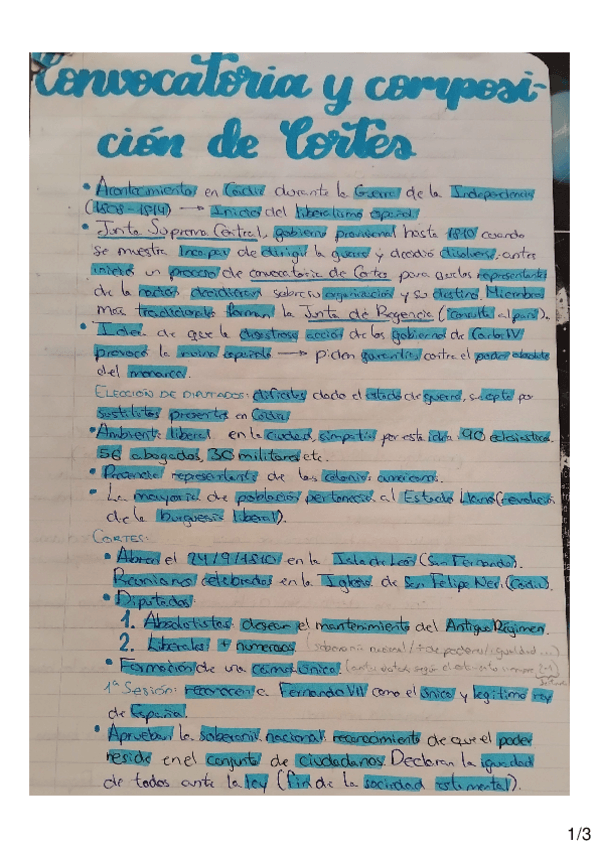 Convocatoria y composi-
ción de Cortes
• Acontecimiento en Cádiz durante la Guerra de la Independencia
(1808-1814) → Inicio del liberalismo español.
• Junta Suprema Central, gobierno provisional hasta 1810 cuando
se muestra incapaz de dirigir la guerra y decidió disolverse, antes
inició un proceso de convocatoria de Cortes para que los representantes
de la nación decidieran sobre su organización y su destino. Miembros
más tradicionales forman la Junta de Regencia ("consulta al país").
• Idea de que la desastrosa acción de los gobiernos de Carlos IV
provocó la ruina española → piden garantías contra el poder absoluto
del monarca.
ELECCIÓN DE DIPUTADOS: difíciles dado el estado de guerra, se optó por
sustitutos presentes en Cádiz
• Ambiente liberal en la ciudad, simpatía por esta idea 90 eclesiásticos,
56 abogados, 30 militares etc.
• Presencia representantes de las colonias americanas.
• La mayoría de población pertenecía al Estado Llano
de la burguesía liberal).
CORTES:
• Abren el 24/9/1810 en la Isla de León (San Fernando).
Reuniones celebradas en la Iglesia de San Felipe Neri (Cádiz).
• Diputados:
1. Absolutistas: desean el mantenimiento del Antiguo Régimen.
2. Liberales + numerosos (soberanía nacional / ÷ de poderes / igualdad ...)
• Formación de una cámara única. (antes estos según el
1ª SESIÓN: reconocen a Fernando VII como el único y legítimo rey
de España.
• Aprueban la soberanía nacional: reconocimiento de que el poder
reside en el conjunto de ciudadanos. Declaran la igualdad
de todos ante la ley (fin de la sociedad estamental).
1/3